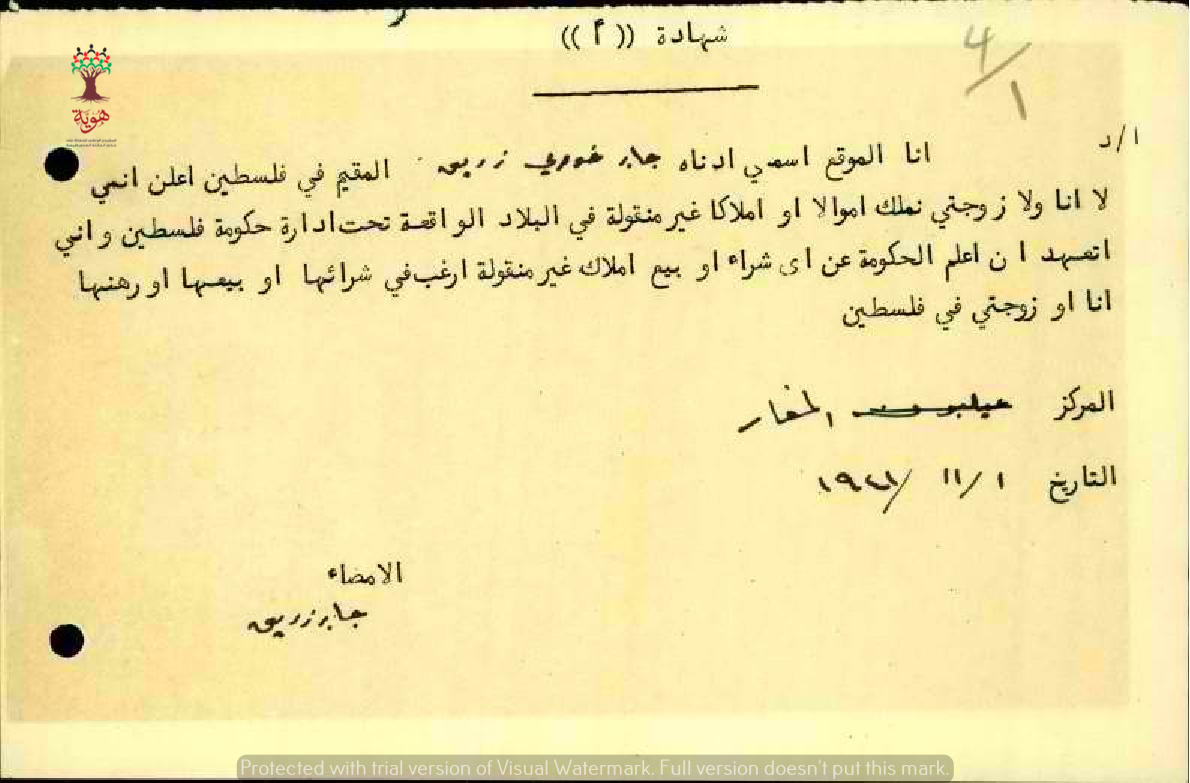 شهادة (( أ ))
4/1
ا/د
انا الموقع اسمي ادناه جابر خوري زريق المقيم في فلسطين اعلن انني
لا انا ولا زوجتي نملك اموالا او املاكا غير منقولة في البلاد الواقعة تحت ادارة حكومة فلسطين واني
اتعهد ان اعلم الحكومة عن اى شراء او بيع املاك غير منقولة ارغب في شرائها او بيعها او رهنها
انا او زوجتي في فلسطين
المركز عيلبون المغار
التاريخ ١ /١١ /
الامضاء
جابر زريق
هوية
Protected with trial version of Visual Watermark. Full version doesn't put this mark.